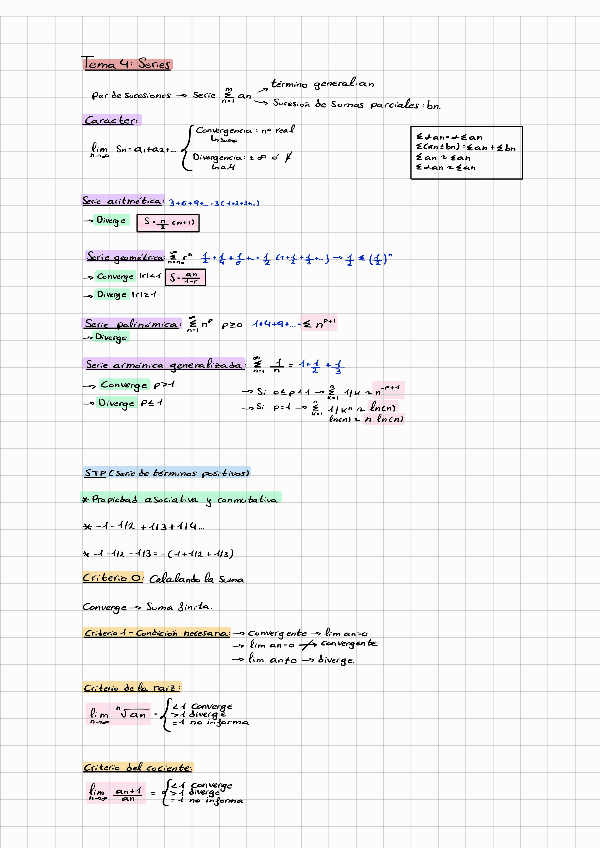 Tema 4: Series
→ término general: an
Par de sucesiones → Serie Σ an
→ Sucesión de sumas parciales: bn.
Caracter:
Convergencia: nº real
lim Sn = a1+a2+...
n→∞
Divergencia: ± ∞ ó ∄
Σ(an±bn) = Σan ± Σbn
Serie aritmética: 3+6+9+... 3(1+2+3+..)
→ Diverge S = n/2 (n+1)
Serie geométrica: Σ rⁿ 1/2 + 1/4 + 1/8 +... 1/2 (1+1/2+1/4+...) → 1/2 Σ (1/2)ⁿ
→ Converge |r|<1 S = an/1-r
→ Diverge |r|≥1
Serie polinómica: Σ nᵖ p≥0 1+4+9+... Σ nᵖ⁺¹
→ Diverge
Serie armónica generalizada: Σ 1/n = 1+1/2+1/3
→ Converge p>1
→ Si 0≤p<1 → Σ 1/k ≈ n⁻ᵖ⁺¹
→ Diverge p≤1
→ Si p=1 → Σ 1/kⁿ ≈ ln(n)
ln(n) ≈ n ln(n)
STP (Serie de términos positivos)
* Propiedad asociativa y conmutativa
* -1 - 1/2 + 1/3 + 1/4...
* -1 -1/2 -1/3 = -(1+1/2+1/3)
Criterio 0: Calculando la suma
Converge → Suma finita.
Criterio 1 - Condición necesaria: → convergente → lim an=0
→ lim an=0 ↛ convergente
→ lim an≠0 → diverge.
Criterio de la raiz:
<1 converge
lim ⁿ√an = >1 diverge
n→∞
=1 no informa
Criterio del cociente:
<1 converge
lim an+1/an = >1 diverge
n→∞
=1 no informa